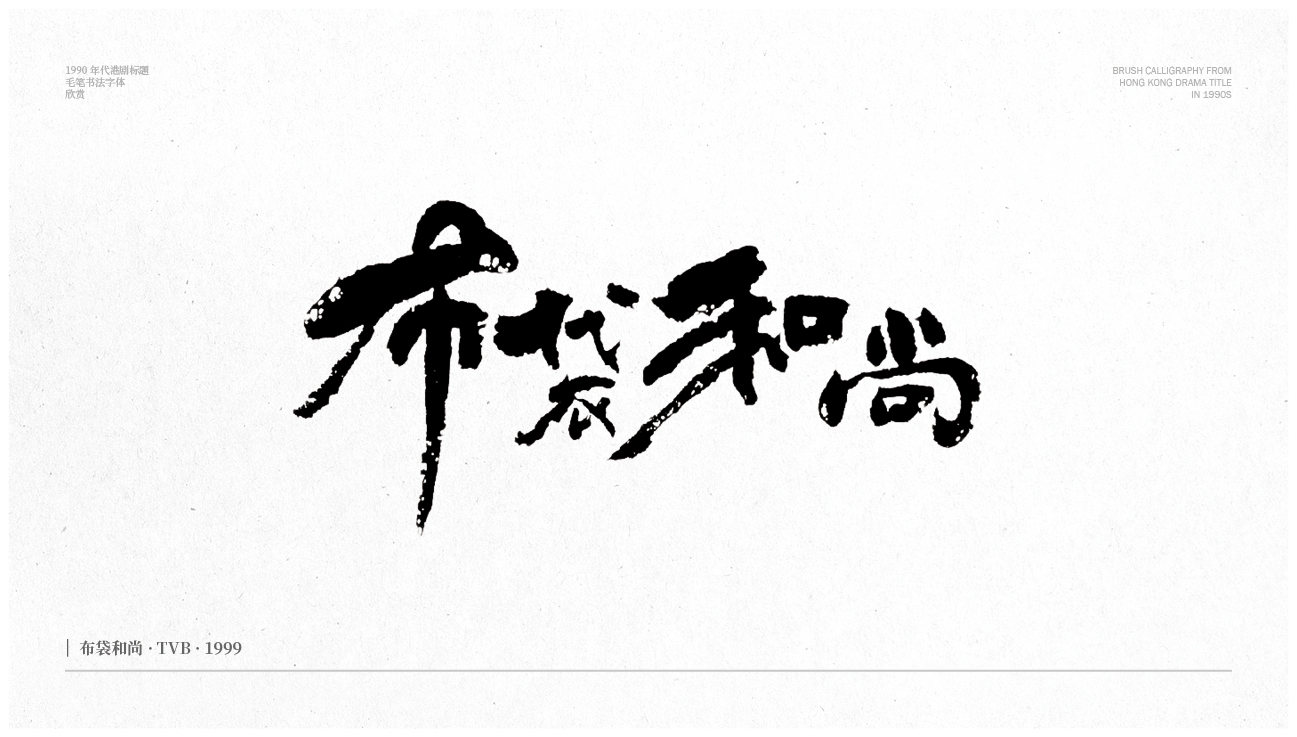 1990 年代港剧标题
毛笔书法字体
欣赏
BRUSH CALLIGRAPHY FROM
HONG KONG DRAMA TITLE
IN 1990S
布袋和尚
布袋和尚 · TVB · 1999